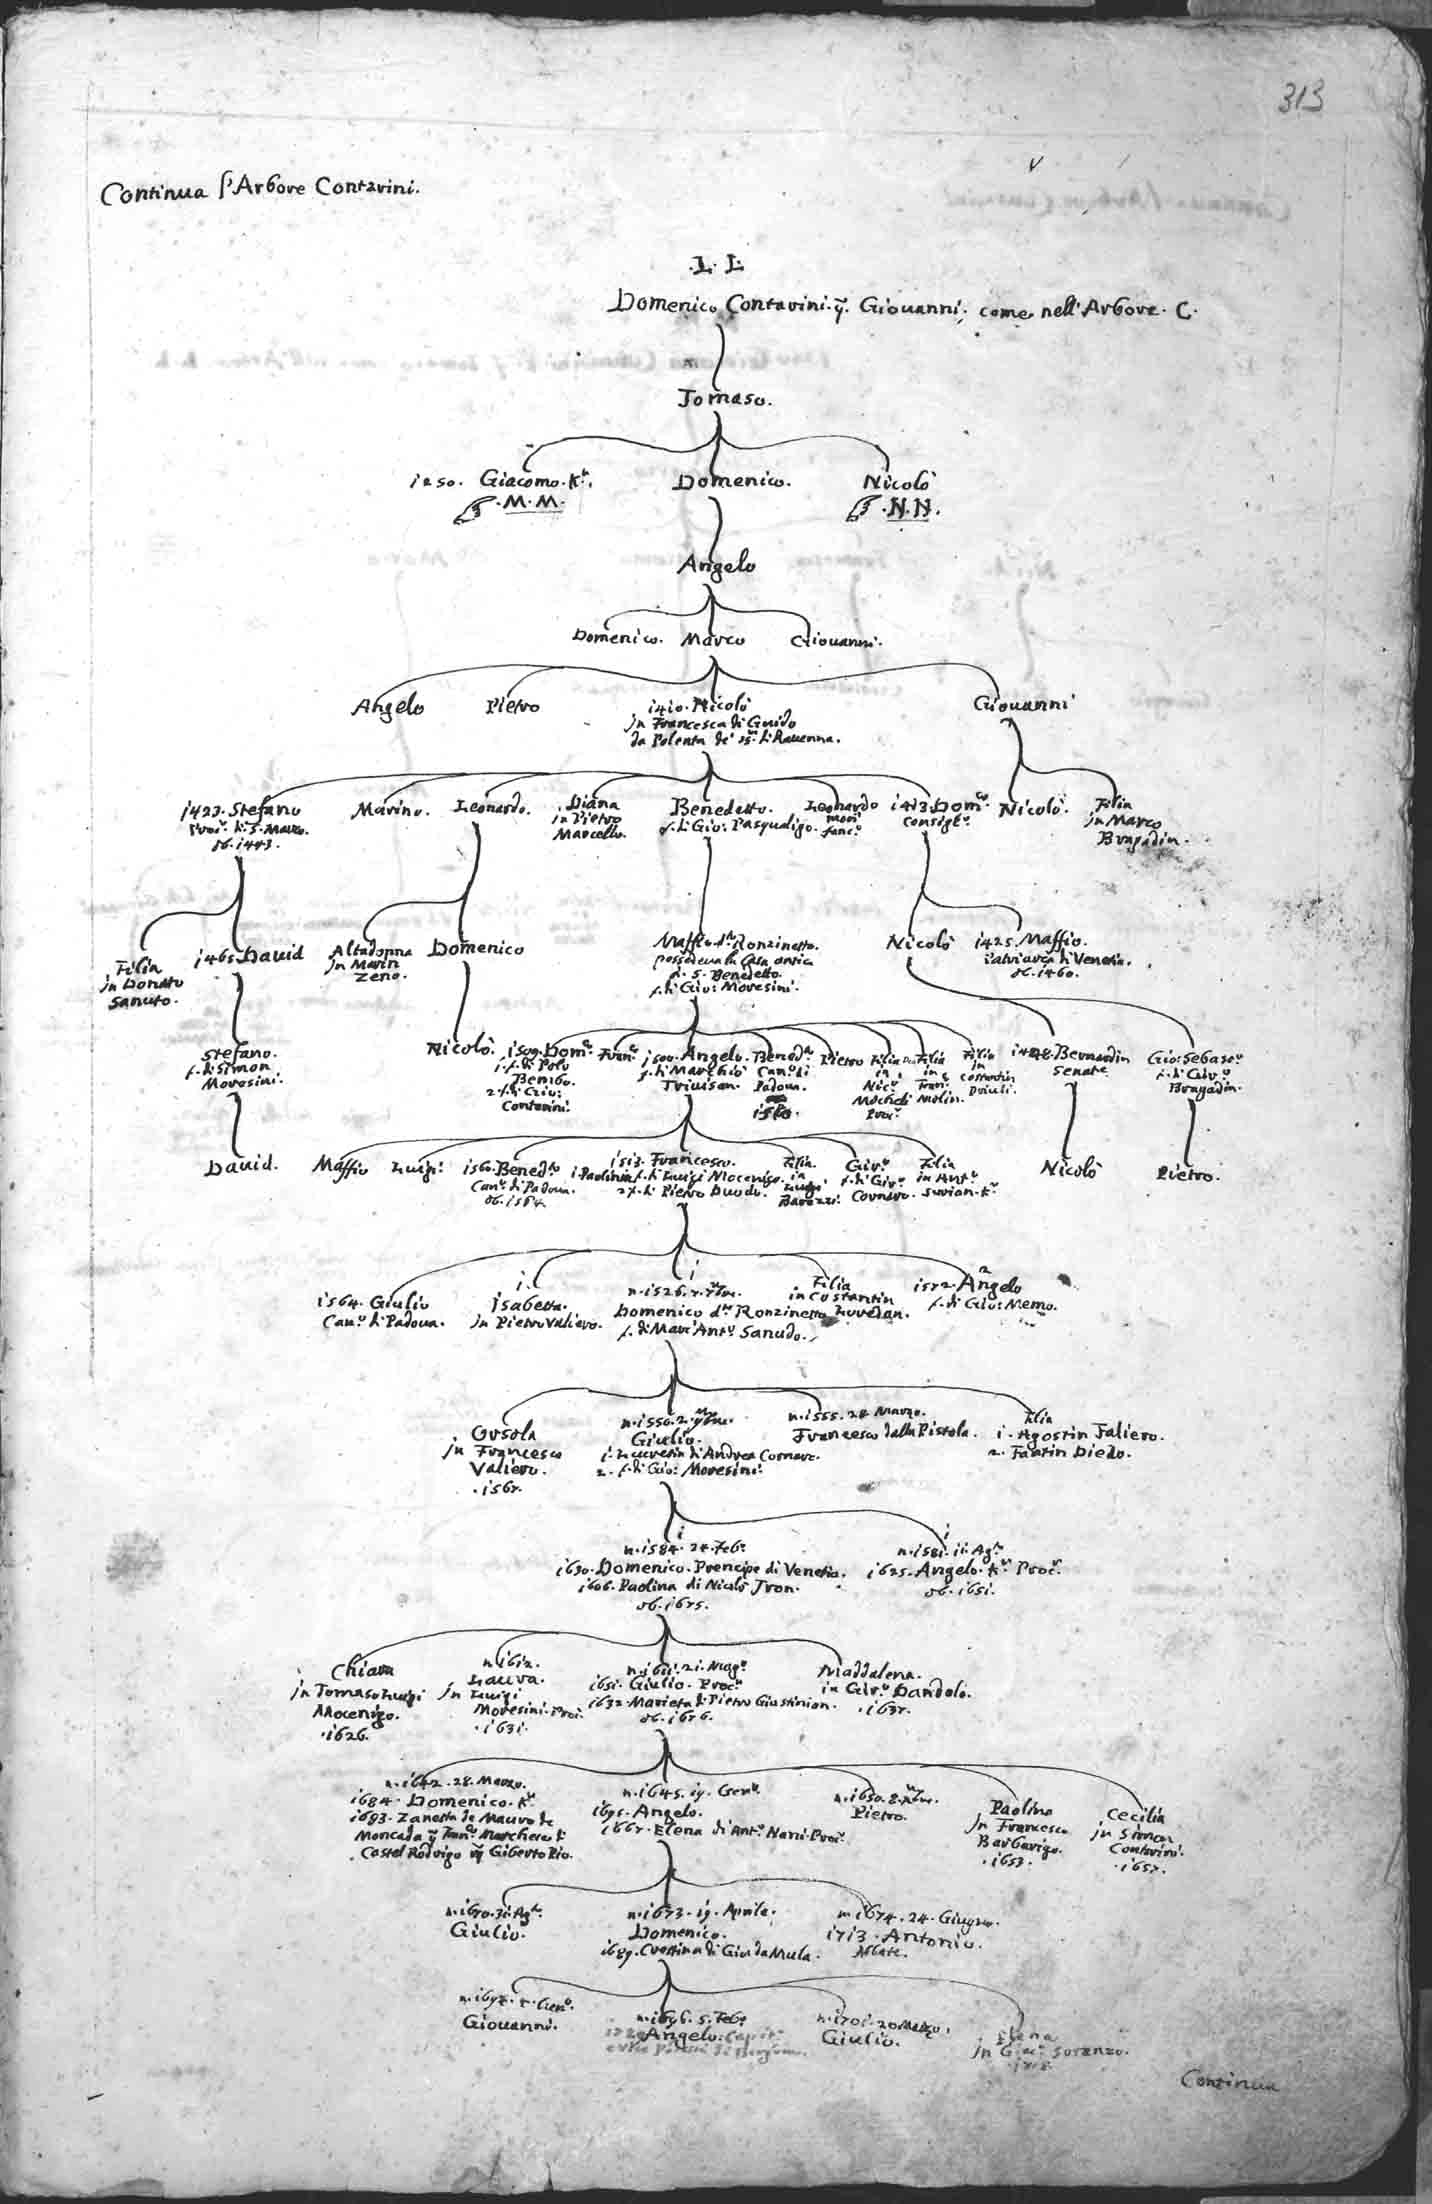 313
Continua l'Arbore Contarini.
.L. L.
Domenico Contarini. q̃. Giouanni. come nell'Arbore. C.
Tomaso.
1250. Giacomo. Kr.
Domenico.
Nicolò
.M. M.
.N. N.
Angelo
Domenico.
Marco
Giouanni.
Angelo
Pietro
1410. Nicolò
in Francesca di Guido
da Polenta de' di Rauenna.
Giouanni
1423. Stefano
di S. Marco.
ob. 1443.
Marino.
Leonardo.
Diana
in Pietro
Marcello.
Benedetto.
f. di Gio: Pasqualigo.
Leonardo
morì
fanco.
1413. Domco.
Consiglo.
Nicolò.
Filia
in Marco
Bragadin.
Filia
in Donato
Sanuto.
1465. David
Altadonna
in Marin
Zeno.
Domenico
Maffio do. Ronzinetto.
possedeua la Casa antica
di S. Benedetto.
f. di Gio: Moresini.
Nicolò
1425. Maffio.
Patriarca di Venetia.
ob. 1460.
Stefano.
f. di Simon
Moresini.
Nicolò.
1509. Domco.
1. f. di Polo
Bembo.
2. f. di
Contarini.
Franco.
1500. Angelo.
f. di Marchiò
Triuisan.
Benedo.
Cano. di
Padoua.
Pietro
Filia
in
Nico.
Michiel
Procr.
Filia
in
Franco.
Molin.
Filia
in
Costantin
Priuli.
Bernardin
Senatr.
Gio: Sebasto.
f. di
Bragadin.
David.
Maffio
Luigi.
Benedo.
Cano. di Padoua.
ob. 1564.
1513. Francesco.
1. Paolina f. di Luigi Mocenigo.
2. f. di Pietro Duodo.
Filia
in
Luigi
Barozzi.
Giro.
f. di Giro.
Cornaro.
Filia
in Anto.
Surian. Kr.
Nicolò
Pietro.
1564. Giulio
Cano. di Padoua.
1.
Isabetta.
in Pietro Valiero.
1
n. 1526.
Domenico do. Ronzinetto
f. di Marc'Anto. Sanudo.
Filia
in Costantin
Loredan.
2
1572. Angelo
f. di Gio: Memo.
Orsola
in Francesco
Valiero.
n. 1550. 2.
Giulio.
1. Lucretia di Andrea Cornaro.
2. f. di Gio: Moresini.
n. 1555. 28 Marzo.
Francesco dalla Pistola.
Filia
1. Agostin Faliero.
2. Fantin Diedo.
1
n. 1584. 24. Febo.
1630. Domenico. Prencipe di Venetia.
1606. Paolina di Nicolò Tron.
ob. 1675.
1
n. 1581. 11. Ago.
1625. Angelo. Kr. Procr.
ob. 1651.
Chiara
in Tomaso Luigi
Mocenigo.
.1626.
n. 1612.
Laura.
in Luigi
Moresini. Procr.
.1631.
n. 1611. 21. Mago.
1651. Giulio. Procr.
1632. Marieta di Pietro Giustinian.
ob. 1676.
Maddalena.
in Giro. Dandolo.
.1637.
n. 1642. 28. Marzo.
1684. Domenico. Kr.
1693. Zanetta de Mauro de
Moncada q̃ Franco. Marchese di
Castel Rodrigo q̃ Giberto Pio.
n. 1645. 19. Geno.
1695. Angelo.
1667. Elena di Anto. Nani. Procr.
n. 1650. 8.
Pietro.
Paolina
in Francesco
Barbarigo.
.1653.
Cecilia
in Simon
Contarini.
.1657.
n. 1670. 31. Ago.
Giulio.
n. 1673. 19. Aprile.
Domenico.
1689. Crestina di Gio: da Mula.
n. 1674. 24. Giugno.
1713. Antonio.
Abate.
Giouanni.
n. 1696. 5. Febo.
Angelo. Capit.
n. 1701. 20 Marzo.
Giulio.
Elena
in Giaco. Soranzo.
Continua